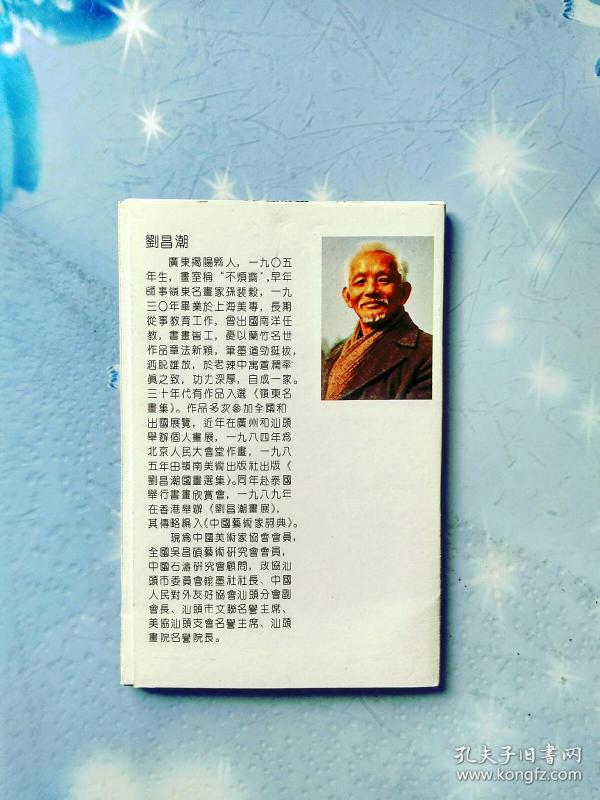 劉昌潮
廣東揭陽縣人，一九〇五
年生，畫室稱“不煩齋”，早年
師事嶺東名畫家孫裴穀，一九
三〇年畢業於上海美專，長期
從事教育工作，曾出國南洋任
教，書畫皆工，憂以蘭竹名世
作品章法新穎，筆墨遒勁挺拔，
洒脫雄放，於老辣中寓蒼潤率
真之致，功力深厚，自成一家。
三十年代有作品入選《嶺東名
畫集》。作品多次參加全國和
出國展覽，近年在廣州和汕頭
舉辦個人畫展，一九八四年為
北京人民大會堂作畫，一九八
五年由嶺南美術出版社出版《
劉昌潮國畫選集》。同年赴泰國
舉行書畫欣賞會，一九八九年
在香港舉辦《劉昌潮畫展》，
其傳略編入《中國藝術家詞典》。
現為中國美術家協會會員，
全國吳昌碩藝術研究會會員，
中國石濤研究會顧問，政協汕
頭市委員會翰墨社社長、中國
人民對外友好協會汕頭分會副
會長、汕頭市文聯名譽主席、
美協汕頭支會名譽主席、汕頭
畫院名譽院長。
孔夫子旧書网
www.kongfz.com